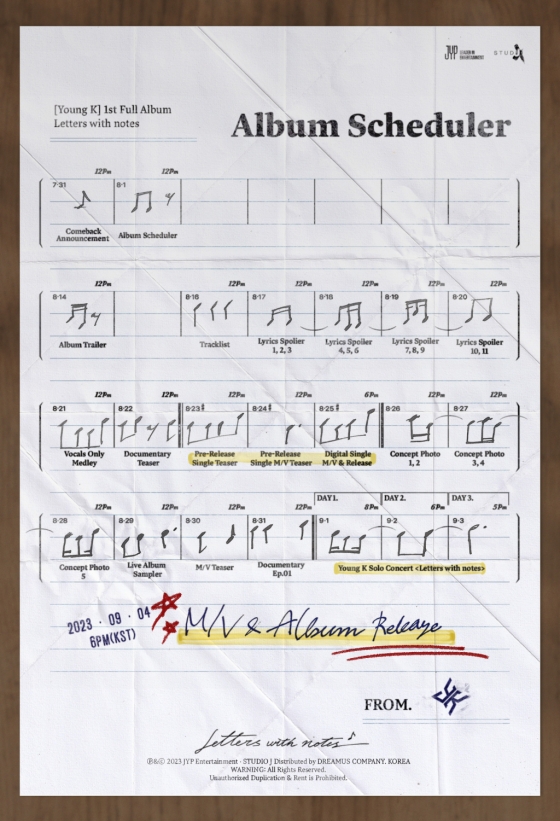 JYP
ENTERTAINMENT
STUDIO J
[Young K] 1st Full Album
Letters with notes
Album Scheduler
12PM 12PM
7·31 8·1
Comeback
Announcement Album Scheduler
12PM 12PM 12PM 12PM 12PM 12PM
8·14 8·16 8·17 8·18 8·19 8·20
Album Trailer Tracklist Lyrics Spoiler Lyrics Spoiler Lyrics Spoiler Lyrics Spoiler
1, 2, 3 4, 5, 6 7, 8, 9 10, 11
12PM 12PM 12PM 12PM 6PM 12PM 12PM
8·21 8·22 8·23 8·24 8·25 8·26 8·27
Vocals Only Documentary Pre-Release Pre-Release Digital Single Concept Photo Concept Photo
Medley Teaser Single Teaser Single M/V Teaser M/V & Release 1, 2 3, 4
DAY 1. DAY 2. DAY 3.
12PM 12PM 12PM 12PM 8PM 6PM 5PM
8·28 8·29 8·30 8·31 9·1 9·2 9·3
Concept Photo Live Album M/V Teaser Documentary Young K Solo Concert <Letters with notes>
5 Sampler Ep.01
2023 · 09 · 04
6PM(KST)
M/V & Album Release
FROM. YK
Letters with notes
℗&© 2023 JYP Entertainment · STUDIO J Distributed by DREAMUS COMPANY. KOREA
WARNING: All Rights Reserved.
Unauthorized Duplication & Rent is Prohibited.